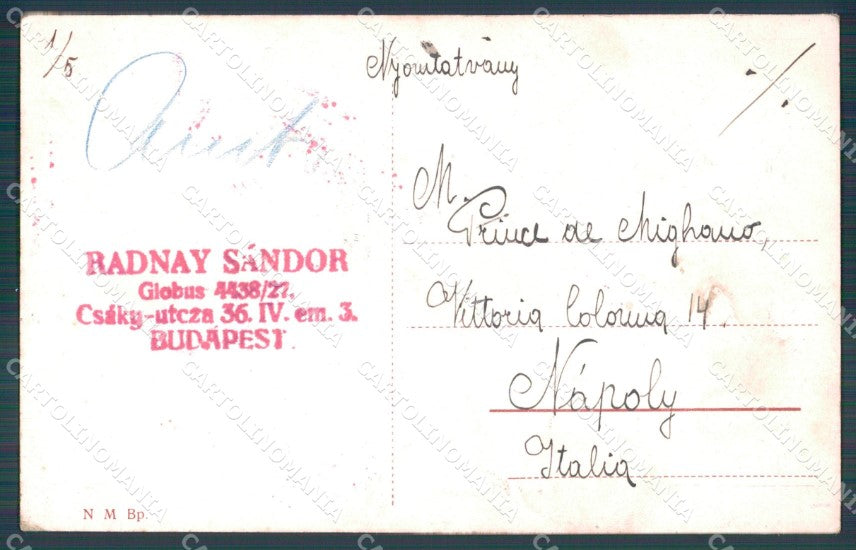 1/5
Nyomtatvány
·/.
RADNAY SÁNDOR
Globus 4438/27.
Csáky-utcza 36. IV. em. 3.
BUDAPEST
M.
Prince de Mighano,
Vittoria Colonna 14.
Nápoly
Italia
N M Bp.
CARTOLINOMANIA